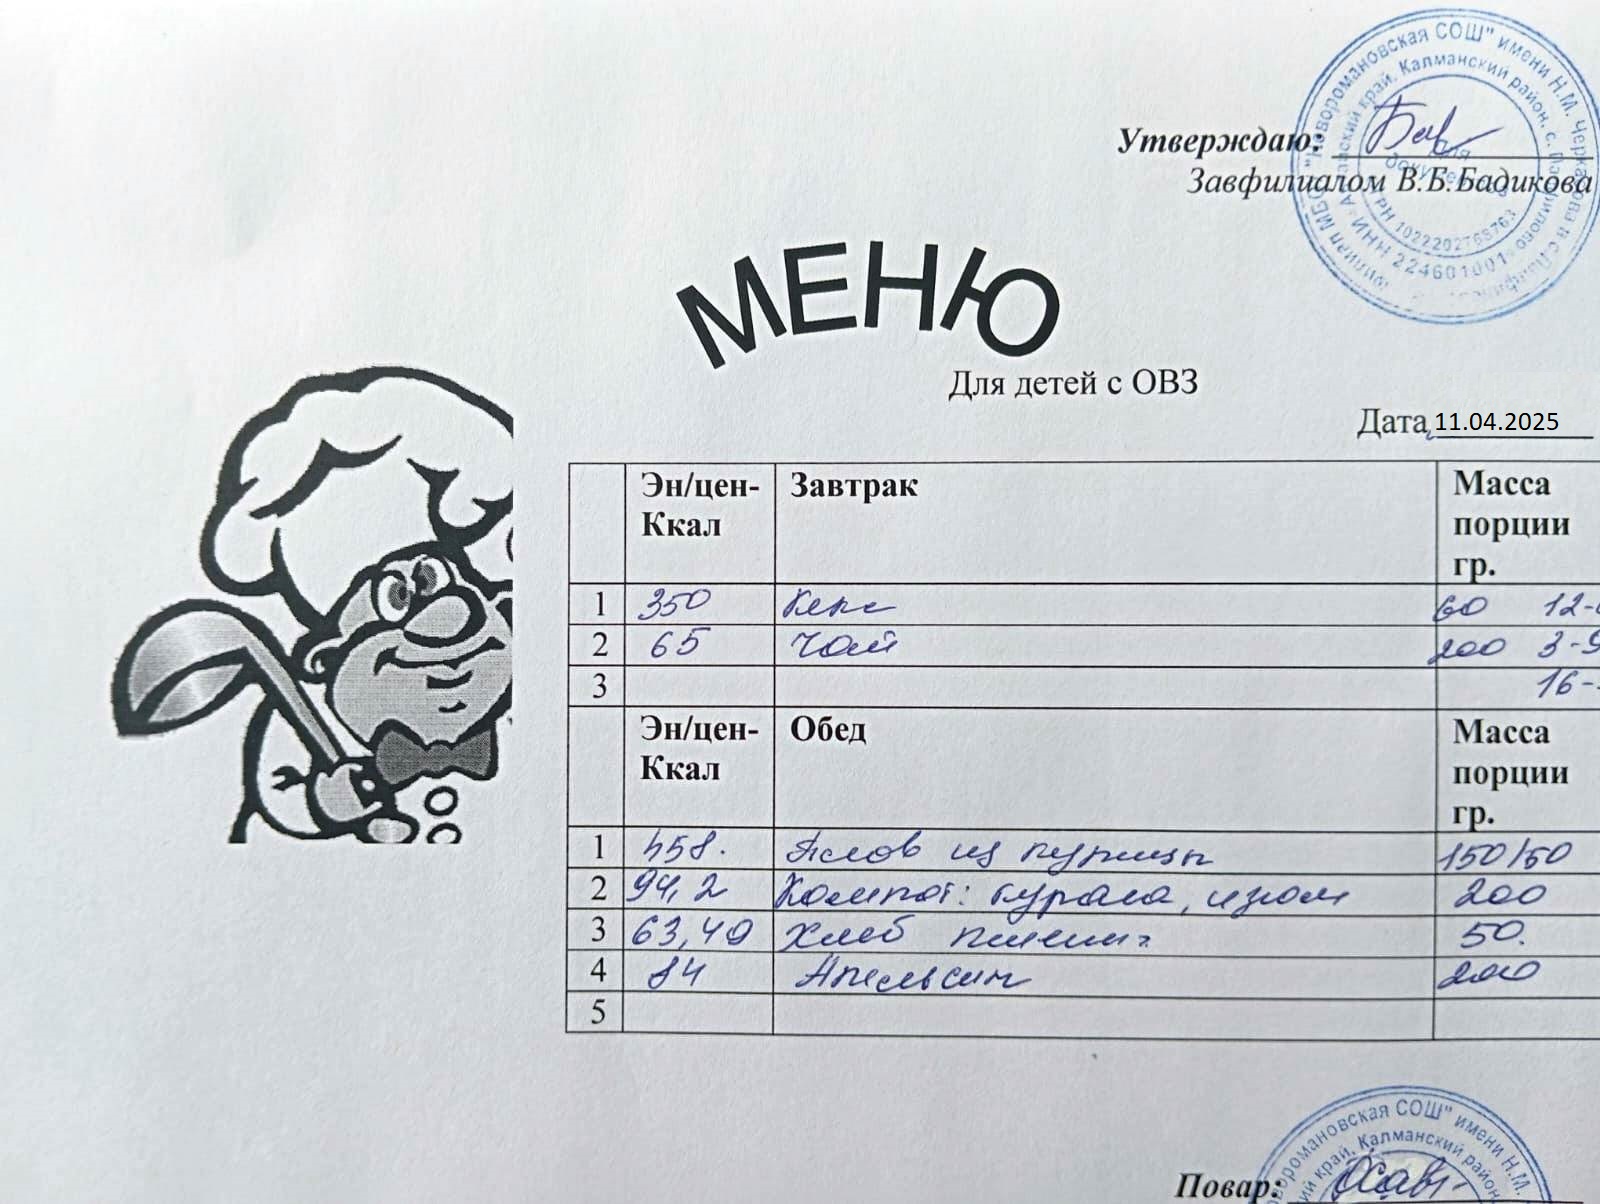 "Новоромановская СОШ" имени Н.М. Черкасова в с.
край, Калманский район, с.
для документов
ОГРН 1022202768763
ИНН 224601001
Утверждаю:
Завфилиалом В.Б.Бадикова
МЕНЮ
Для детей с ОВЗ
Дата 11.04.2025
Эн/цен-Ккал Завтрак Масса порции гр.
1 350 Кекс 60 12-
2 65 Чай 200 3-9
3 16-
Эн/цен-Ккал Обед Масса порции гр.
1 458. Плов из курицы 150/50
2 94,2 Компот: курага, изюм 200
3 63,40 Хлеб пшенич 50.
4 84 Апельсин 200
5
Новоромановская СОШ" имени Н.М.
край, Калманский район
Повар: